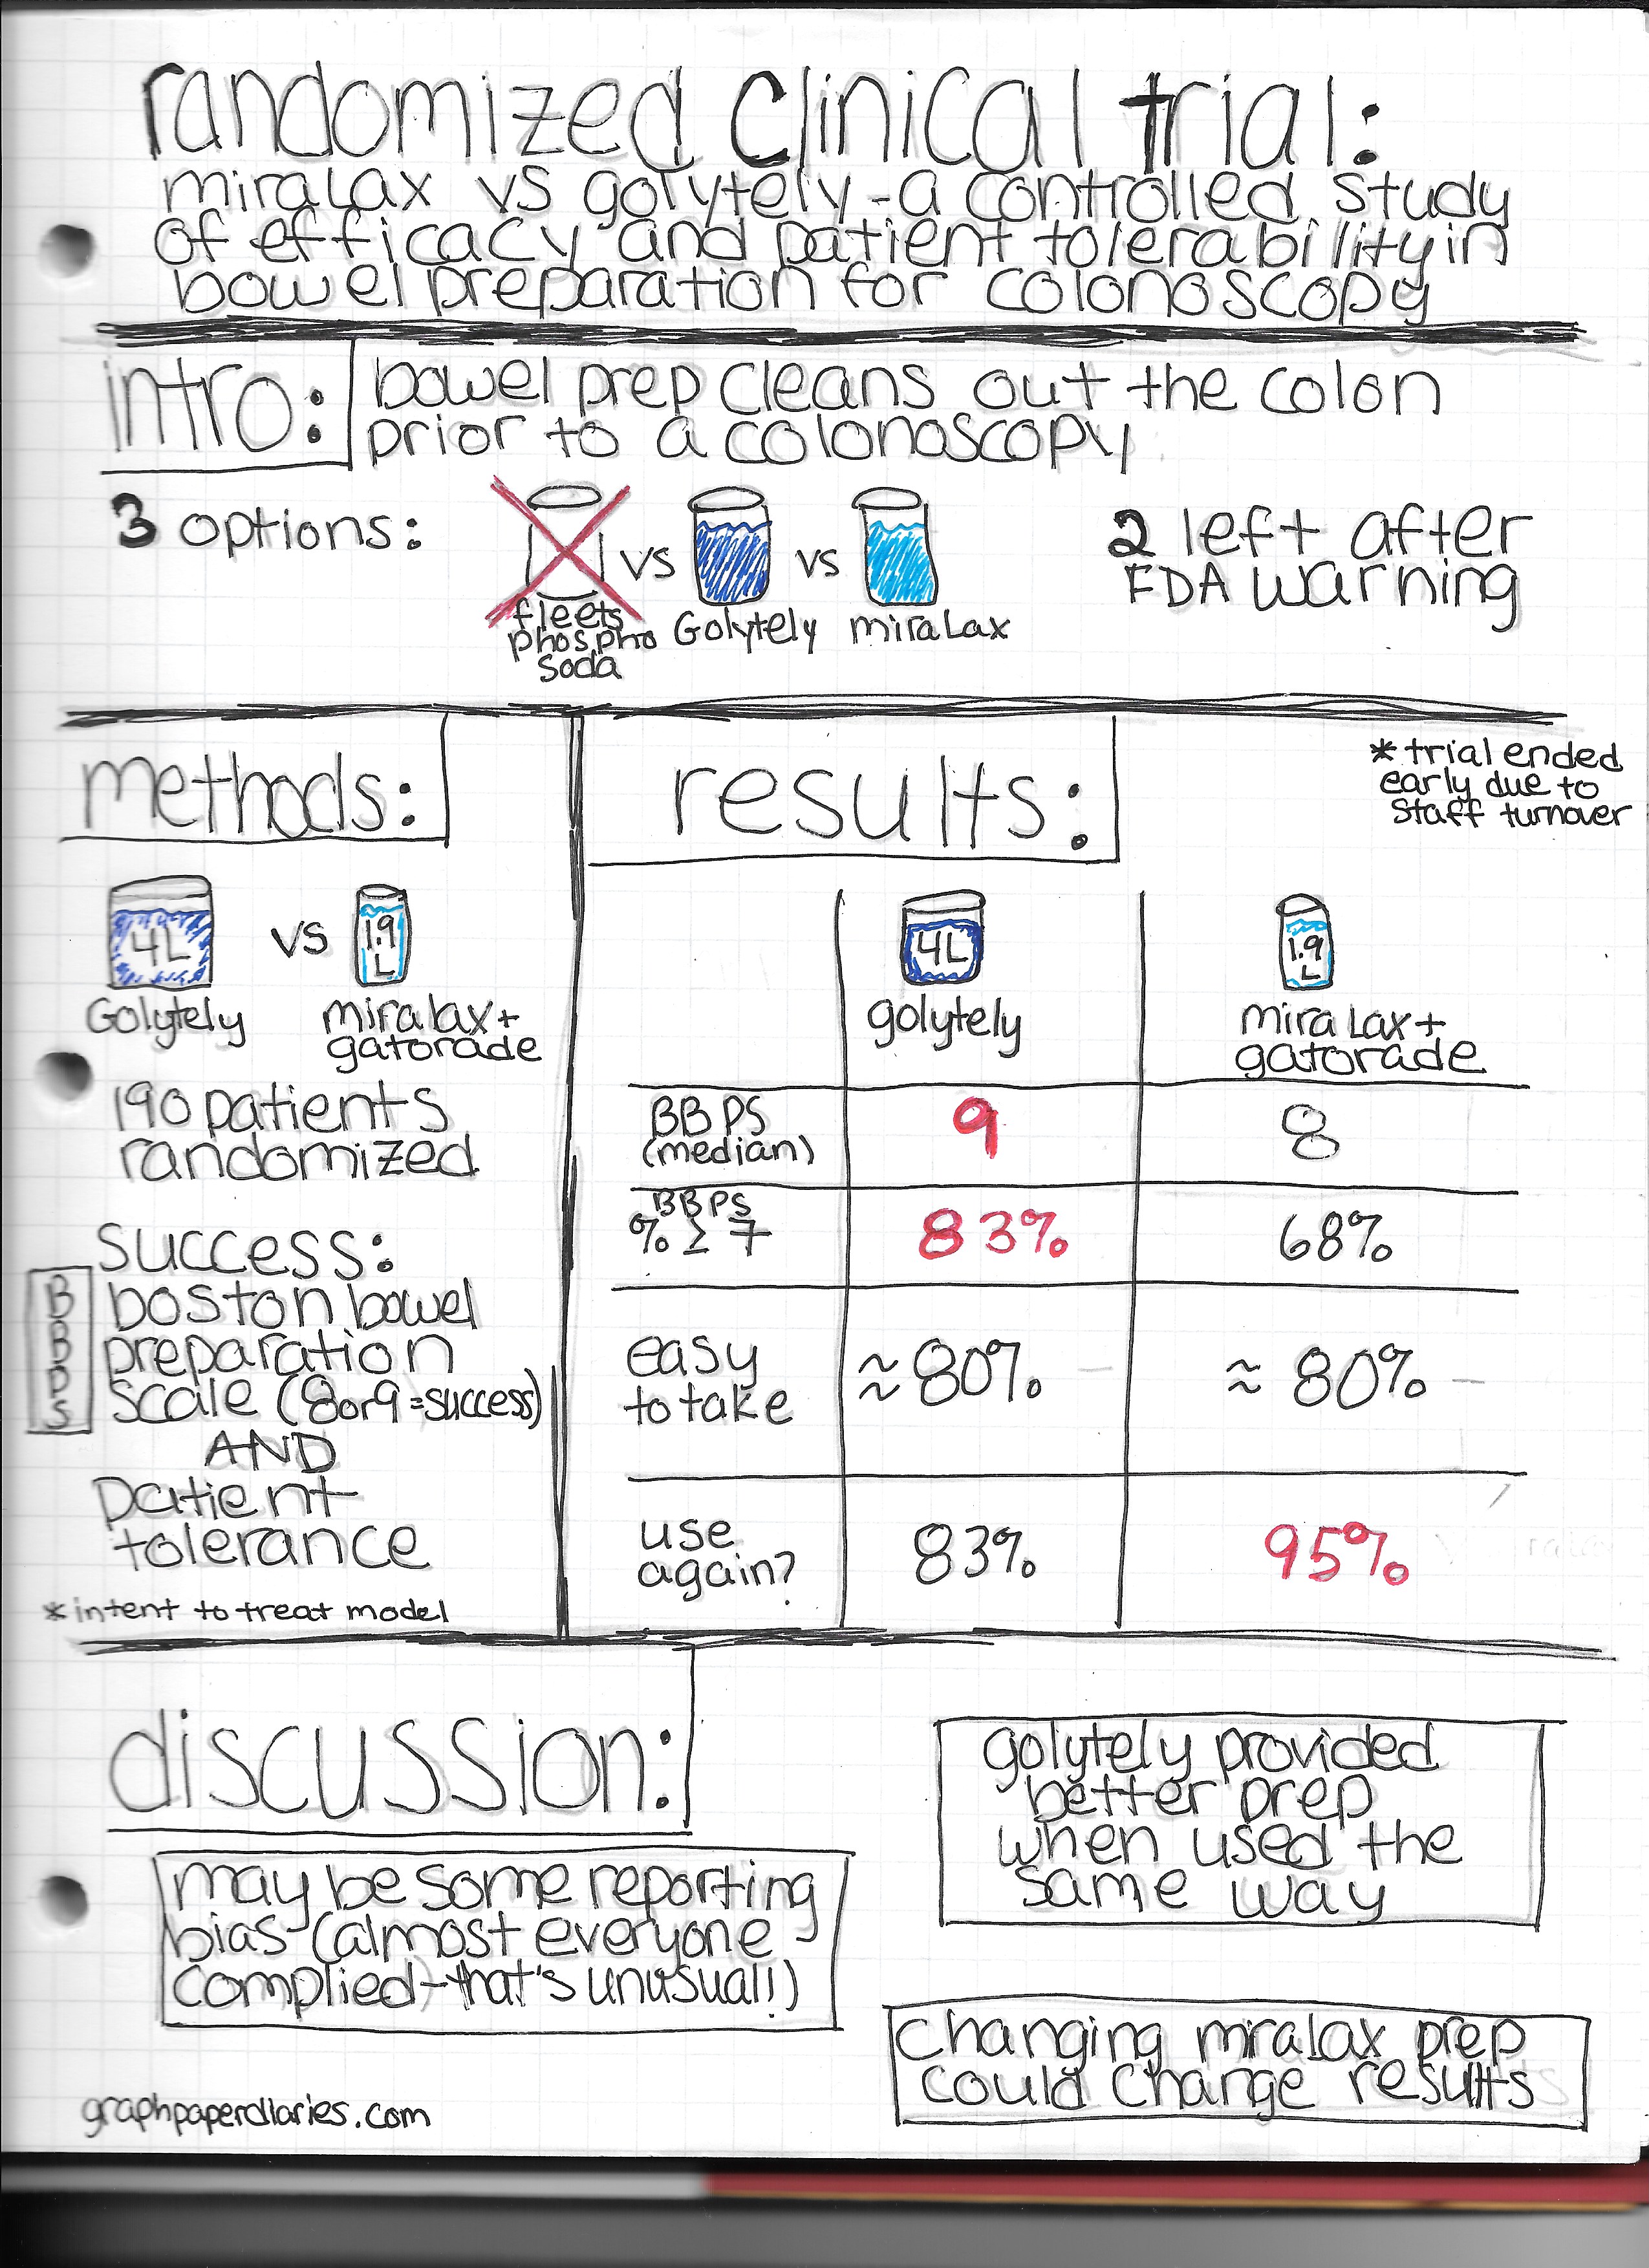 randomized clinical trial:
miralax vs golytely - a controlled study
of efficacy and patient tolerability in
bowel preparation for colonoscopy
intro:
bowel prep cleans out the colon
prior to a colonoscopy
3 options:
fleets
phospho
soda
vs
Golytely
vs
miraLax
2 left after
FDA warning
methods:
4L
Golytely
vs
1.9
L
miralax+
gatorade
190 patients
randomized
success:
BBPS
boston bowel
preparation
scale (8or9=success)
AND
patient
tolerance
*intent to treat model
results:
*trial ended
early due to
staff turnover
4L
golytely
1.9
L
miraLax+
gatorade
BBPS
(median)
9
8
BBPS
% ≥ 7
83%
68%
easy
to take
≈80%
≈ 80%
use
again?
83%
95%
discussion:
may be some reporting
bias (almost everyone
complied - that's unusual!)
golytely provided
better prep
when used the
same way
changing miralax prep
could change results
graphpaperdiaries.com